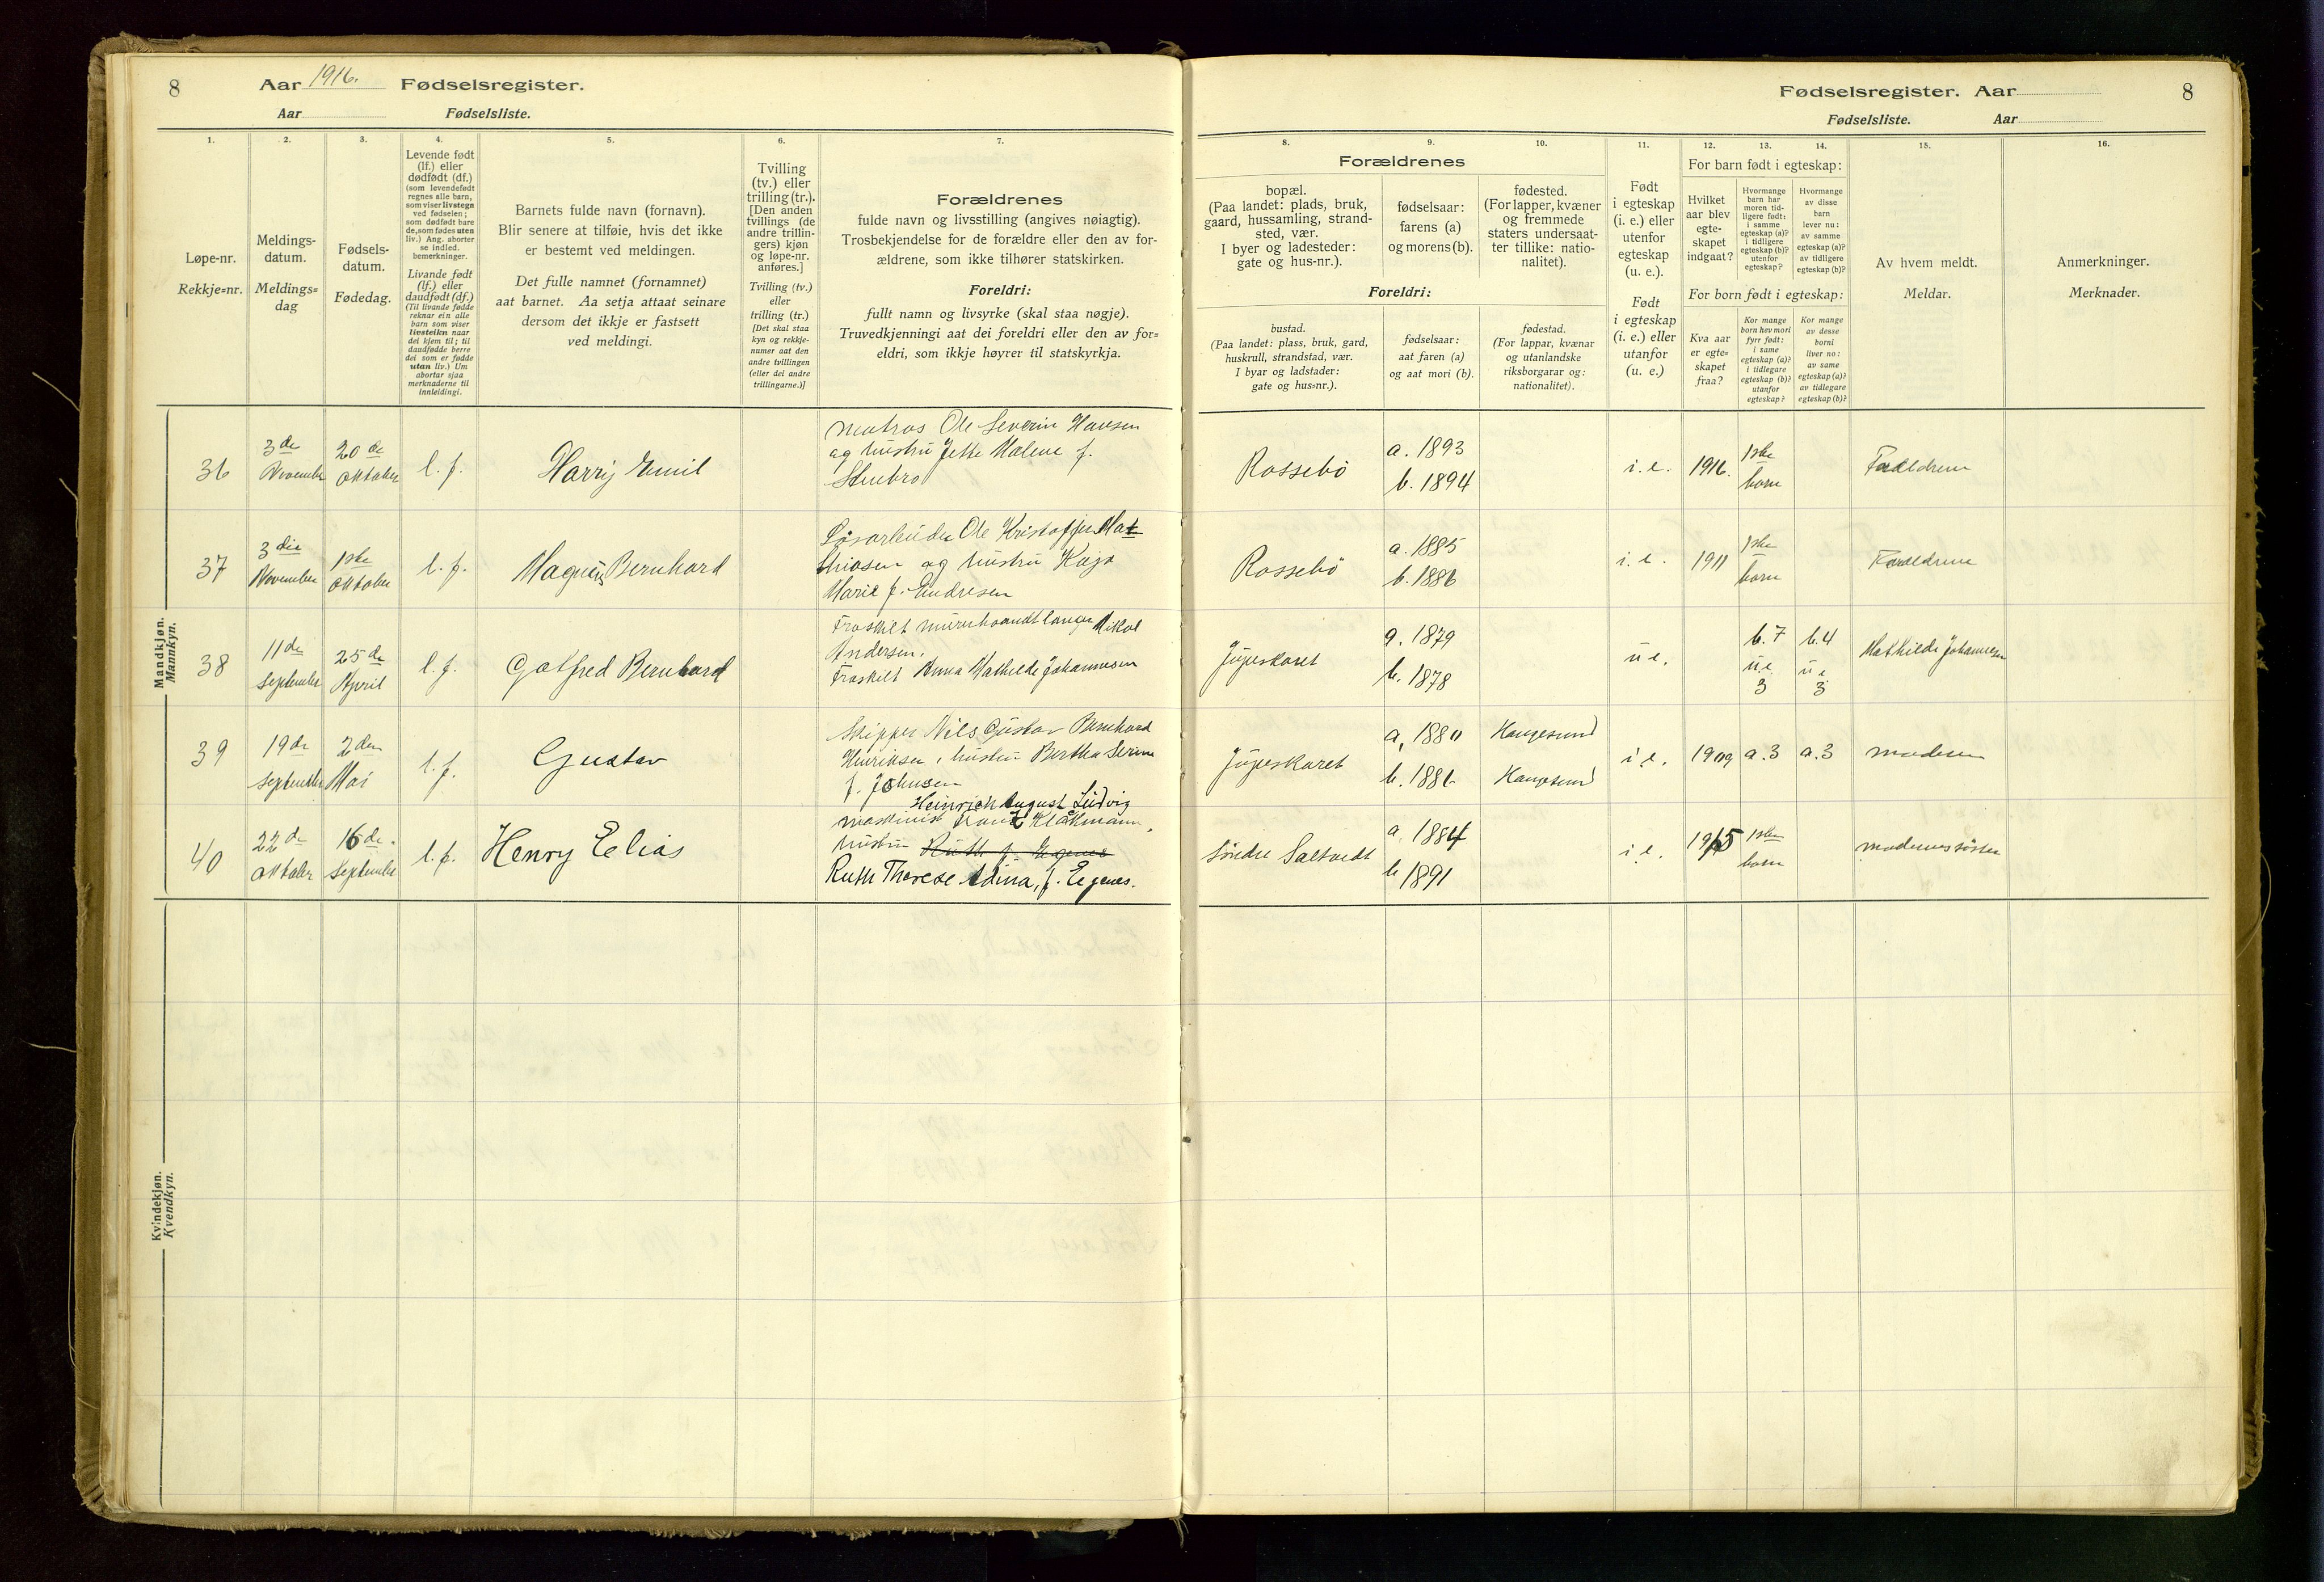 8 Aar 1916. Fødselsregister.
Aar Fødselsliste.
1. 2. 3. 4. 5. 6. 7.
Løpe-nr.
Rekkje=nr.
Meldings-
datum.
Meldings=
dag
Fødsels-
datum.
Fødedag.
Levende født
(lf.) eller
dødfødt (df.)
(som levendefødt
regnes alle barn,
som viser livstegn
ved fødselen;
som dødfødt bare
de, som fødes uten
liv.) Ang. aborter
se indled.
bemerkninger.
Livande født
(lf.) eller
daudfødt (df.)
(Til livande fødde
reknar ein alle
barn som viser
livsteikn naar
dei kjem til; til
daudfødde berre
dei som er fødde
utan liv.) Um
abortar sjaa
merknaderne til
innleidingi.
Barnets fulde navn (fornavn).
Blir senere at tilføie, hvis det ikke
er bestemt ved meldingen.
Det fulle namnet (fornamnet)
aat barnet. Aa setja attaat seinare
dersom det ikkje er fastsett
ved meldingi.
Tvilling
(tv.) eller
trilling (tr.).
[Den anden
tvillings (de
andre trillin-
gers) kjøn
og løpe-nr.
anføres.]
Tvilling (tv.)
eller
trilling (tr.)
[Det skal staa
kyn og rekkje-
numer aat den
andre tvillingen
(eller dei andre
trillingarne.)]
Forældrenes
fulde navn og livsstilling (angives nøiagtig).
Trosbekjendelse for de forældre eller den av for-
ældrene, som ikke tilhører statskirken.
Foreldri:
fullt namn og livsyrke (skal staa nøgje).
Truvedkjenningi aat dei foreldri eller den av for=
eldri, som ikkje høyrer til statskyrkja.
Mandkjøn.
Mannkyn.
36 3de November 20de Oktober l. f. Harry Emil
Matros Ole Severin Hansen
og hustru Jette Malene f.
Stenbro
37 3die November 1ste Oktober l. f. Magnus Bernhard
Løsarbeider Ole Kristoffer Mat-
thiasen og hustru Kaja
Marie f. Endresen
38 11de September 25de April l. f. Gotfred Bernhard
Fraskilt murerhaandtlanger Mikal
Andersen.
Fraskilt Anna Mathilde Johannesen
39 19de September 2den Mai l. f. Gustav
Skipper Nils Gustav Bernhard
Henriksen, hustru Bertha Serine
f. Johnsen
40 22de Oktober 16de September l. f. Henry Elias
Heinrich August Ludvig
maskinist Franz Klåkmann,
hustru Ruth f. Eegenes
Ruth Therese Adina, f. Eegenes.
Kvindekjøn.
Kvendkyn.
Fødselsregister. Aar 8
Fødselsliste. Aar
8. 9. 10. 11. 12. 13. 14. 15. 16.
Forældrenes
bopæl.
(Paa landet: plads, bruk,
gaard, hussamling, strand-
sted, vær.
I byer og ladesteder:
gate og hus-nr.).
fødselsaar:
farens (a)
og morens (b).
fødested.
(For lapper, kvæner
og fremmede
staters undersaat-
ter tillike: natio-
nalitet).
Foreldri:
bustad.
(Paa landet: plass, bruk, gard,
huskrull, strandstad, vær.
I byar og ladstader:
gate og hus=nr.).
fødselsaar:
aat faren (a)
og aat mori (b).
fødestad.
(For lappar, kvænar
og utanlandske
riksborgarar og:
nationalitet).
Født
i egteskap
(i. e.) eller
utenfor
egteskap
(u. e.).
Født
i egteskap
(i. e.) eller
utanfor
(u. e.)
For barn født i egteskap:
Hvilket
aar blev
egte-
skapet
indgaat?
Hvormange
barn har
moren tid-
ligere født:
i samme
egteskap (a)?
i tidligere
egteskap (b)?
utenfor
egteskap?
Hvormange
av disse
barn
lever nu:
av samme
egteskap (a)?
av tidligere
egteskap (b)?
For born født i egteskap:
Kva aar
er egte=
skapet
fraa?
Kor mange
born hev mori
fyrr født:
i same
egteskap (a)?
i tidlegare
egteskap (b)?
utanfor
egteskap?
Kor mange
av desse
borni
liver no:
av same
egteskap (a)?
av tidlegare
egteskap (b)?
Av hvem meldt.
Meldar.
Anmerkninger.
Merknader.
Rossebö a. 1893 b. 1894 i. e. 1916. 1ste barn Forældrene
Rossebö a. 1885 b. 1886 i. e. 1911 1ste barn Forældrene
a. 1879 b. 1878 u e. b. 7 u e. 3 b. 4 u e. 3 Mathilde Johannesen
a. 1880 b. 1881 Haugesund Haugesund i. e. 1909 a. 3 a. 3 moderen
Söndre Saltvedt a. 1884 b 1891 i. e. 1915 1ste barn moderens söster